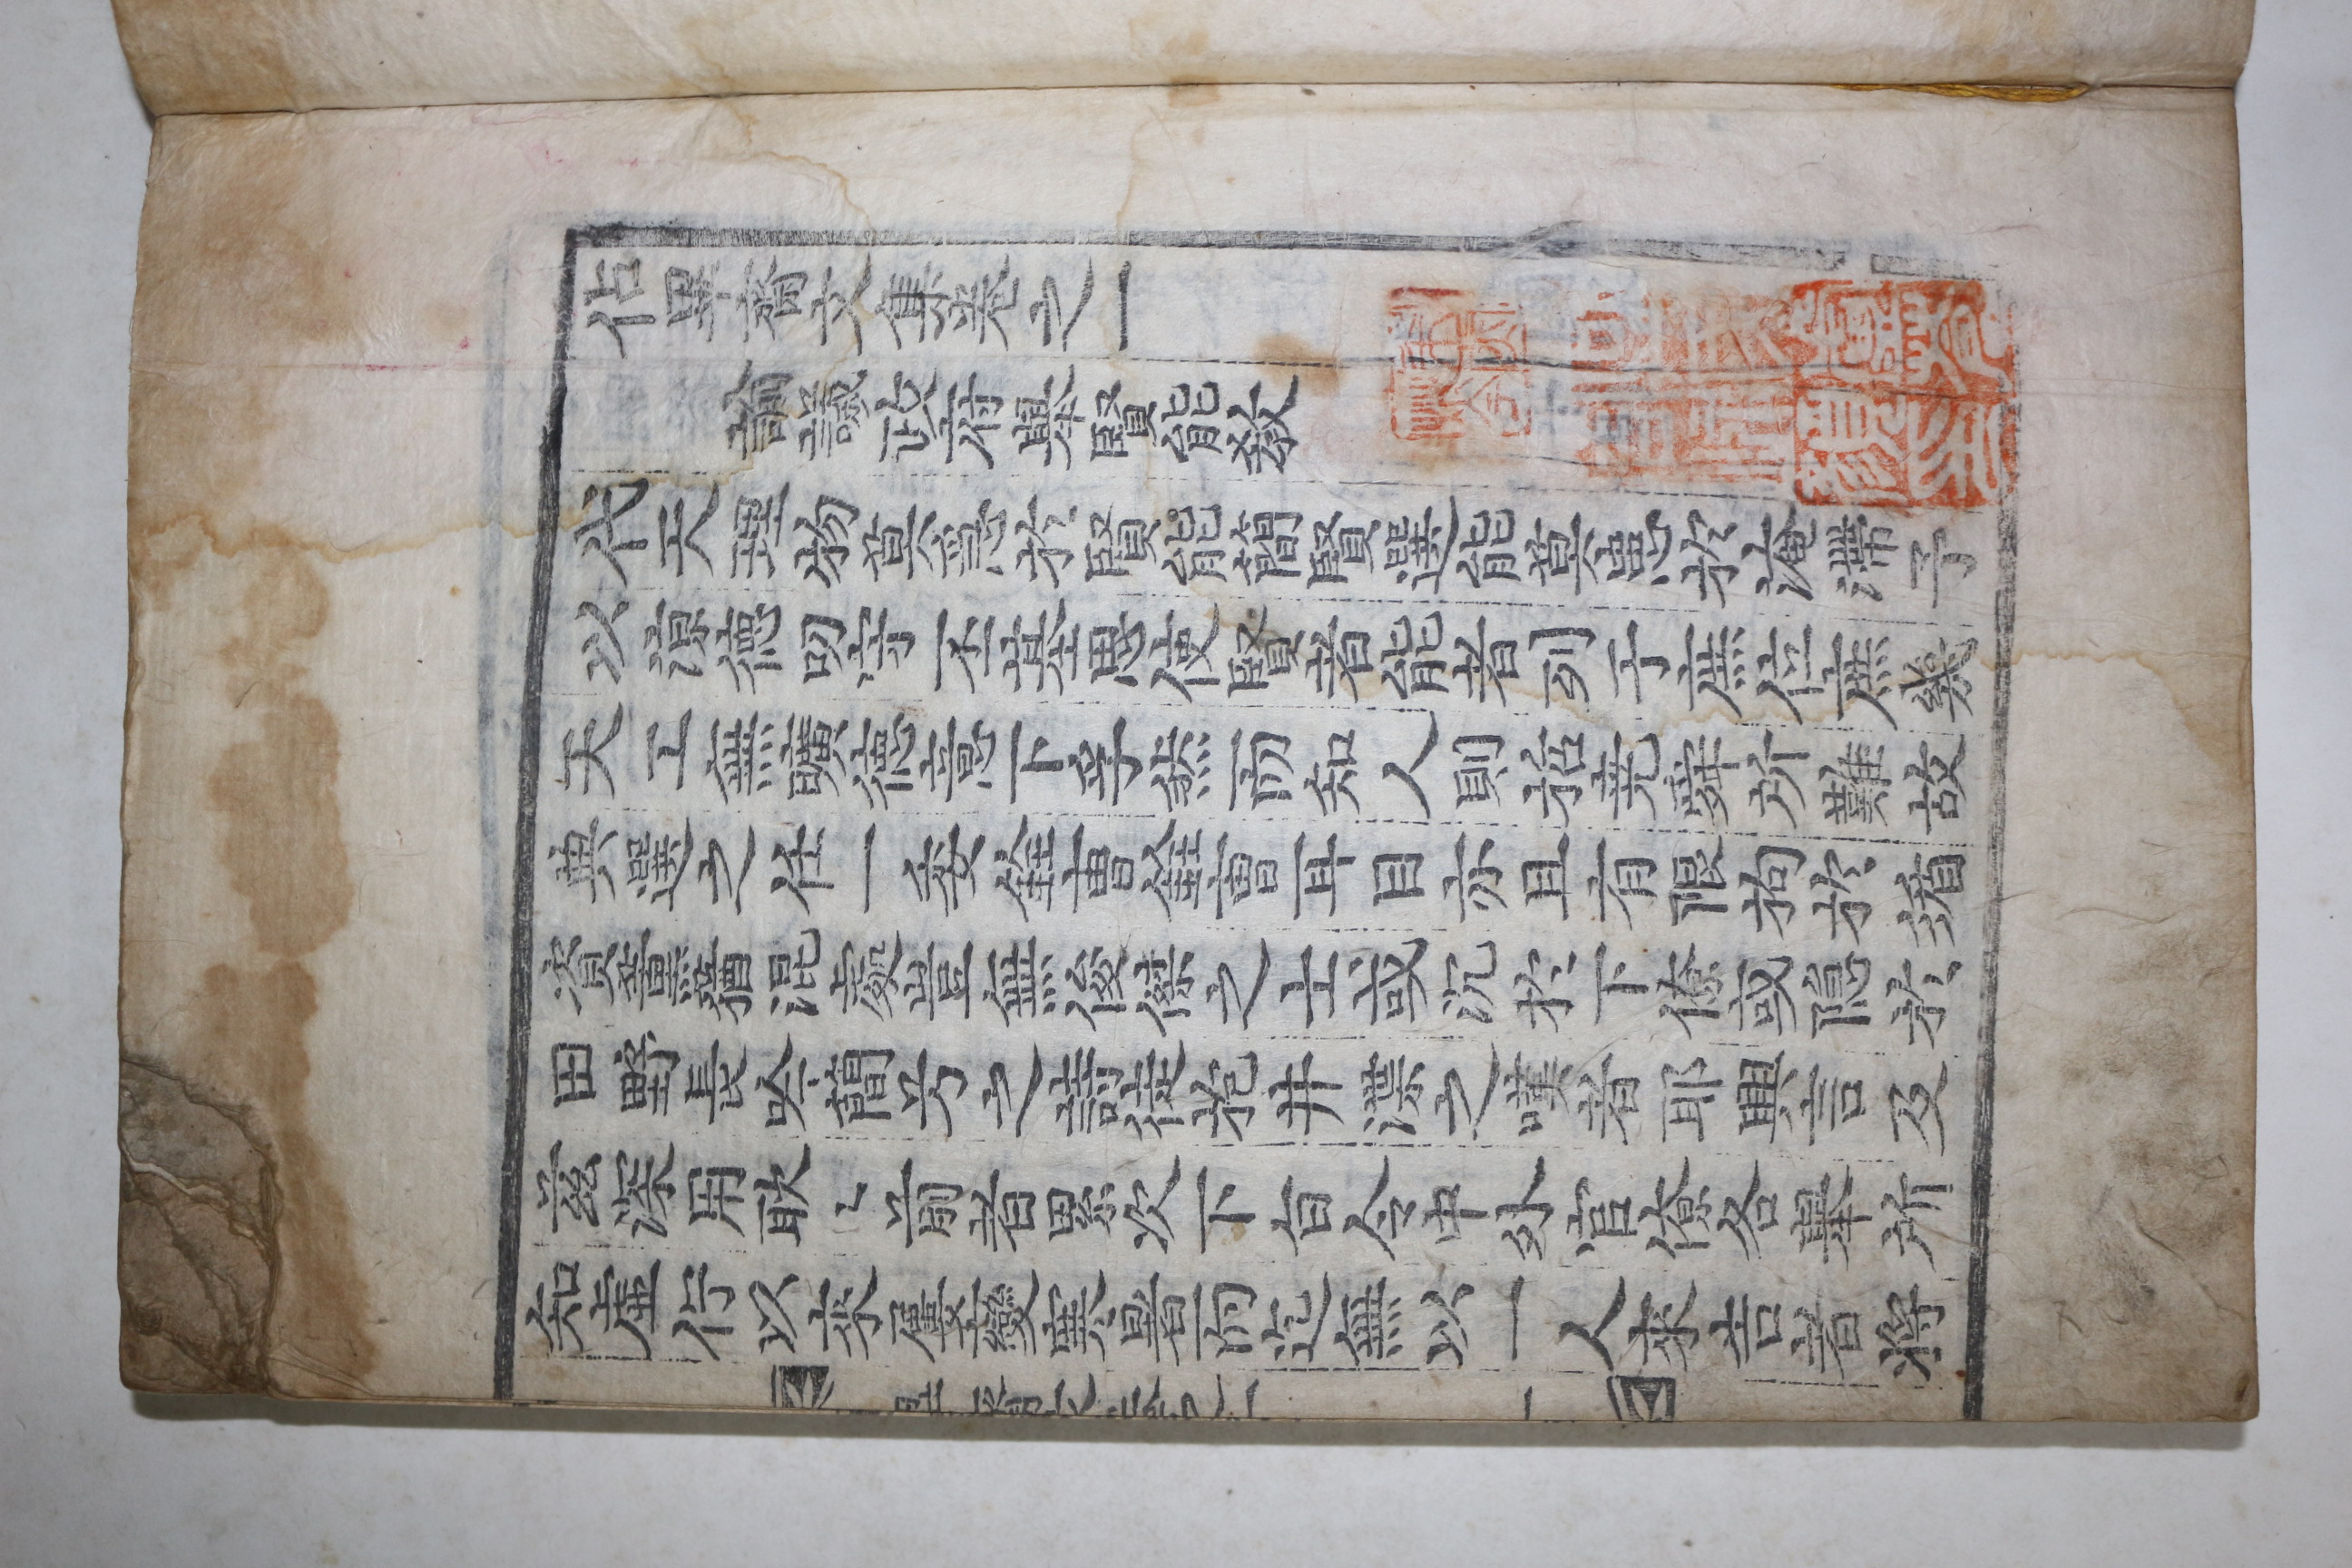 佔畢齋文集卷之一
諭議政府舉賢能教
代天理物莫急於賢能簡賢選能莫患於淹滯予
以涼德叨守丕基思使賢者能者列于庶位庶幾
天工無曠德意下孚然而知人則哲堯舜所難故
典選之任一委銓曹銓曹耳目亦且有限拘於循
資薰蕕混處豈無俊傑之士或沉於下僚或隱於
田野長吟簡兮之詩徒抱井渫之嘆者耶興言及
茲深用耿〻前者累次下旨令中外官僚各舉所
知虛佇以來屢變寒暑而迄無以一人來告者將